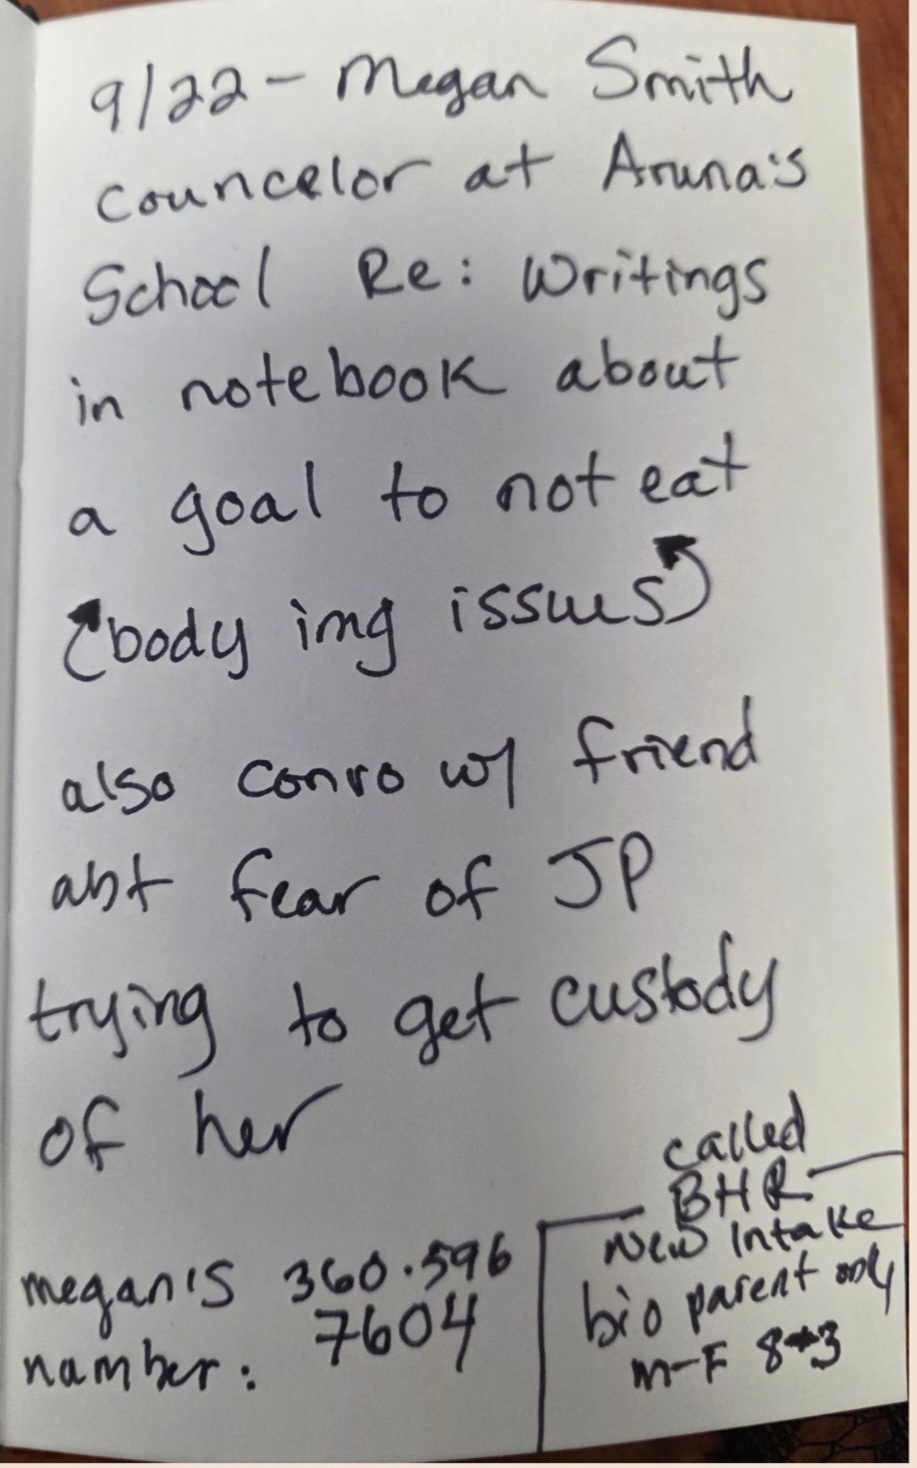 9/22 - Megan Smith
councelor at Aruna's
School Re: Writings
in notebook about
a goal to not eat
(body img issues)
also convo w/ friend
abt fear of JP
trying to get custody
of her
megan's 360.596
7604
number:
called
BHR
New Intake
bio parent only
M-F 8-3